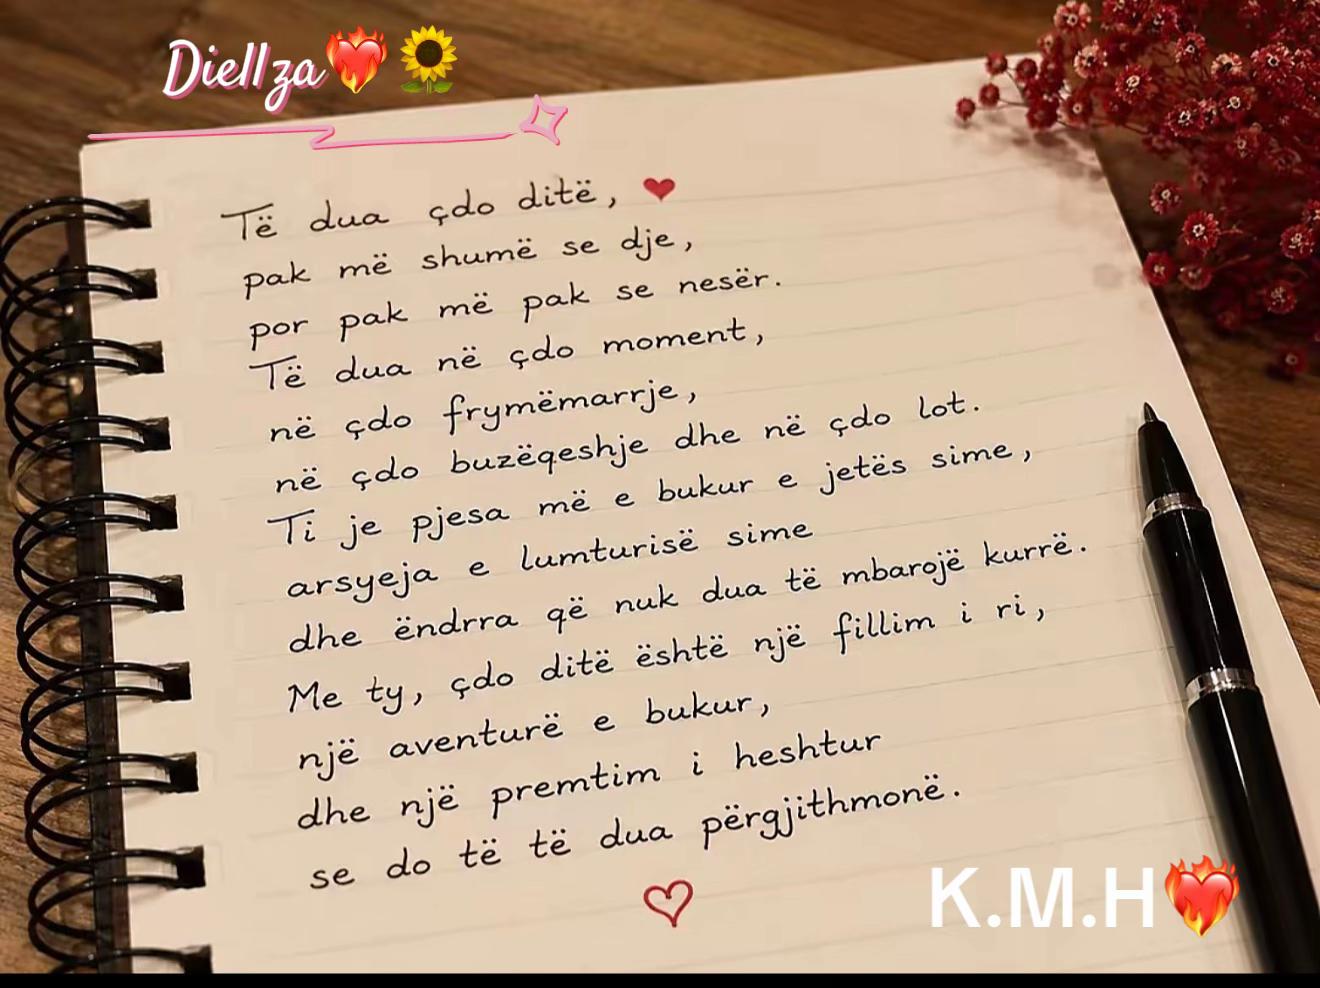 Diellza❤️‍🔥🌻
Të dua çdo ditë, ❤
pak më shumë se dje,
por pak më pak se nesër.
Të dua në çdo moment,
në çdo frymëmarrje,
në çdo buzëqeshje dhe në çdo lot.
Ti je pjesa më e bukur e jetës sime,
arsyeja e lumturisë sime
dhe ëndrra që nuk dua të mbarojë kurrë.
Me ty, çdo ditë është një fillim i ri,
një aventurë e bukur,
dhe një premtim i heshtur
se do të të dua përgjithmonë.
K.M.H❤️‍🔥